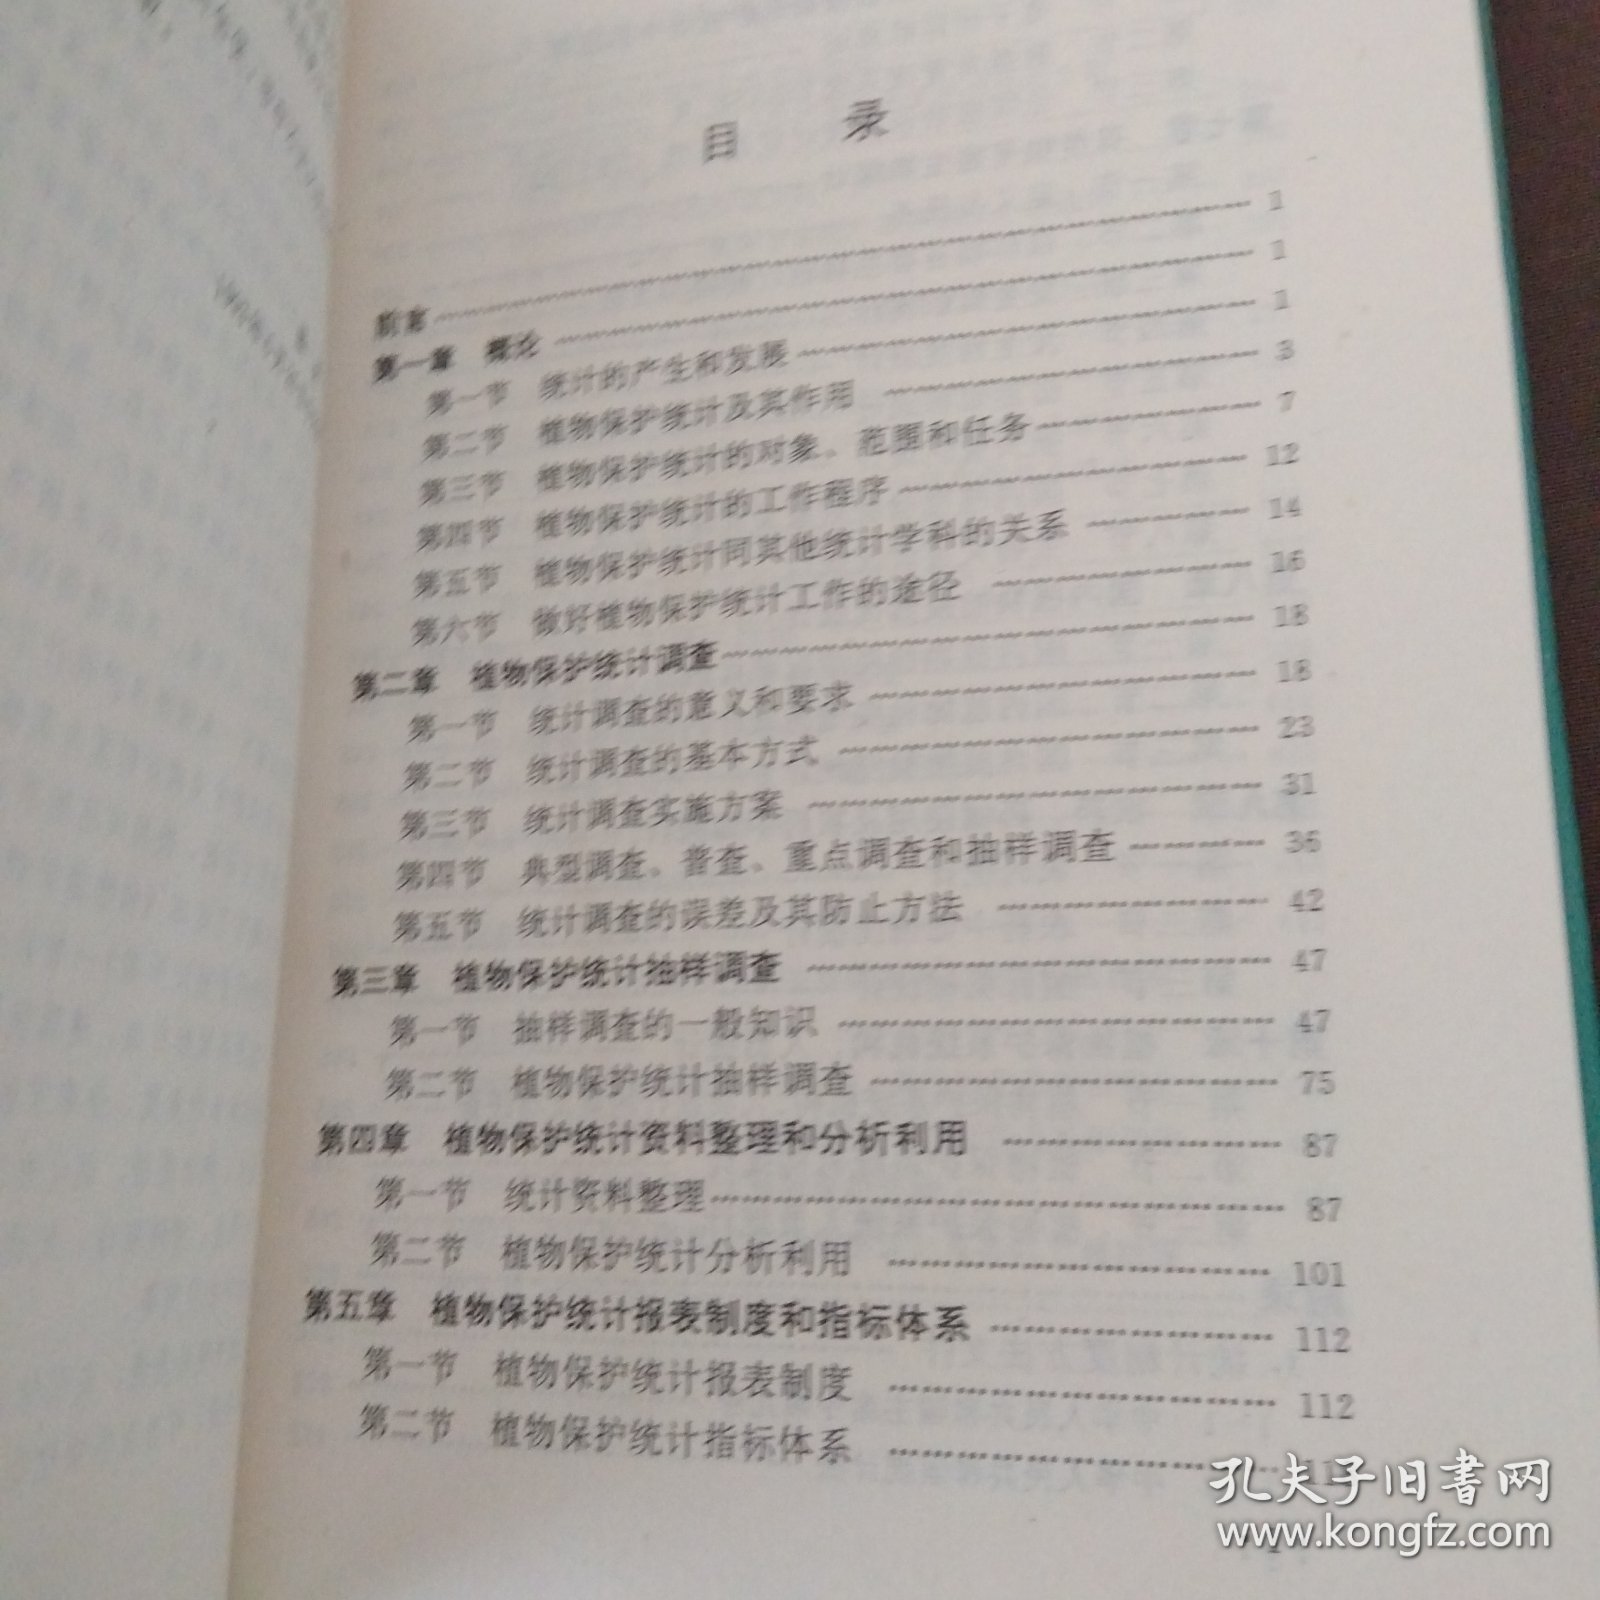 目 录
前言 1
第一章 概论 1
第一节 统计的产生和发展 1
第二节 植物保护统计及其作用 3
第三节 植物保护统计的对象、范围和任务 7
第四节 植物保护统计的工作程序 12
第五节 植物保护统计同其他统计学科的关系 14
第六节 做好植物保护统计工作的途径 16
第二章 植物保护统计调查 18
第一节 统计调查的意义和要求 18
第二节 统计调查的基本方式 23
第三节 统计调查实施方案 31
第四节 典型调查、普查、重点调查和抽样调查 36
第五节 统计调查的误差及其防止方法 42
第三章 植物保护统计抽样调查 47
第一节 抽样调查的一般知识 47
第二节 植物保护统计抽样调查 75
第四章 植物保护统计资料整理和分析利用 87
第一节 统计资料整理 87
第二节 植物保护统计分析利用 101
第五章 植物保护统计报表制度和指标体系 112
第一节 植物保护统计报表制度 112
第二节 植物保护统计指标体系
孔夫子旧书网
www.kongfz.com